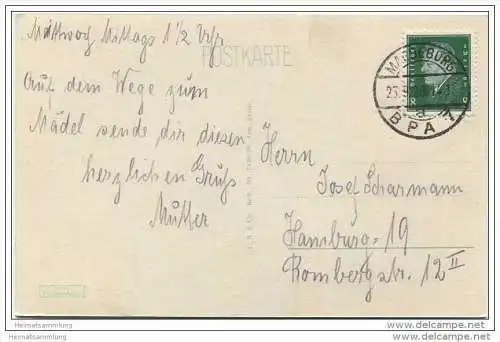 Mittwoch Mittags 1 1/2 Uhr
POSTKARTE
Auf dem Wege zum
Mädel sende dir diesen
herzlichen Gruß
Mutter
MAGDEBURG
BPA
Herrn
Josef Scharmann
Hamburg-19
Rombergstr. 12 II
Heimatsammlung
Heimatsammlung
Heimatsammlung
Heimatsammlung